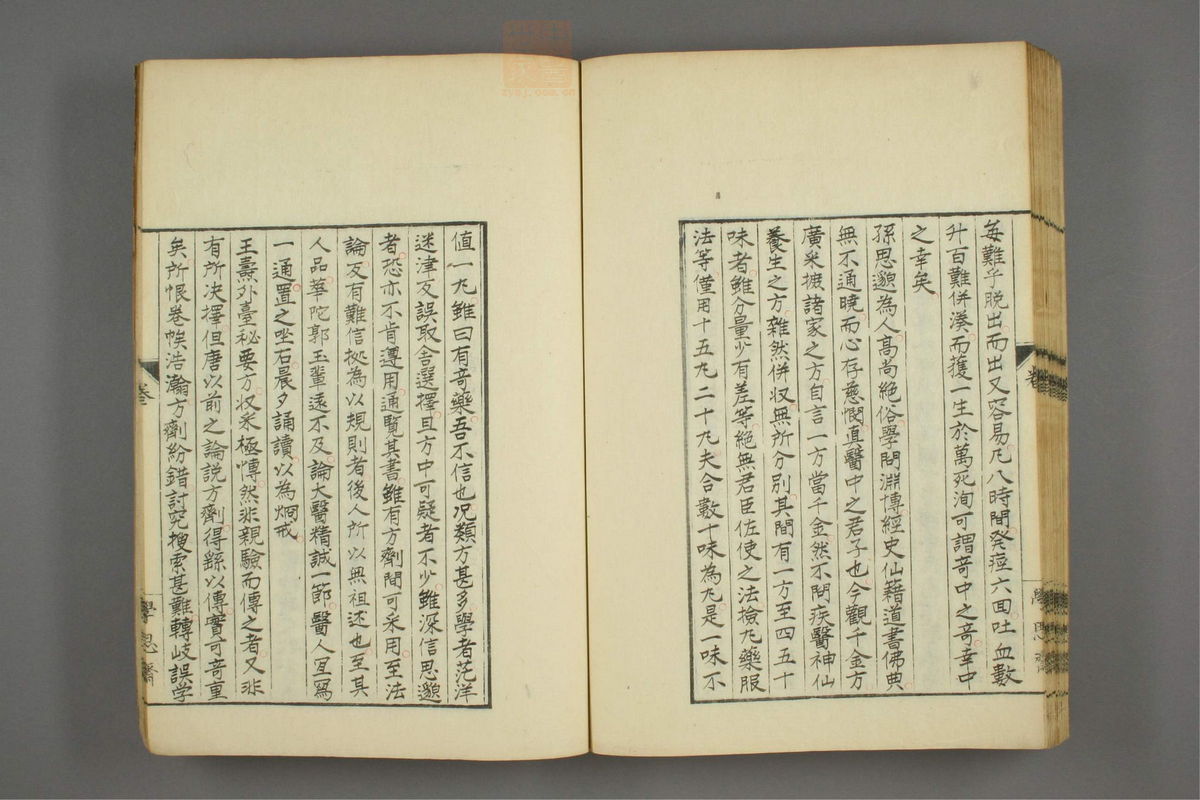 每難乎脫出而出又容易凡八時間発痙六回吐血數
升百難併湊而獲一生於萬死洵可謂奇中之奇幸中
之幸矣
孫思邈為人高尚絕俗學問淵博經史仙籍道書佛典
無不通曉而心存慈憫真醫中之君子也今觀千金方
廣采摭諸家之方自言一方當千金然不問疾醫神仙
養生之方雜然併収無所分別其間有一方至四五十
味者雖分量少有差等絕無君臣佐使之法撿丸藥服
法等僅用十五丸二十丸夫合數十味為丸是一味不
值一丸雖曰有奇藥吾不信也况類方甚多學者茫洋
迷津反誤取舍選擇且方中可疑者不少雖深信思邈
者恐亦不肯遵用通覽其書雖有方劑間可采用至法
論反有難信抝為以規則者後人所以無祖述也至其
人品華陀郭玉輩遠不及論大醫精誠一節醫人宜寫
一通置之坐右晨夕誦讀以為炯戒
王燾外臺秘要方収采極愽然非親驗而傳之者又非
有所决擇但唐以前之論説方劑得繇以傳實可竒重
矣所恨卷帙浩瀚方劑紛錯討究搜索甚難轉歧誤学
卷
學思齋